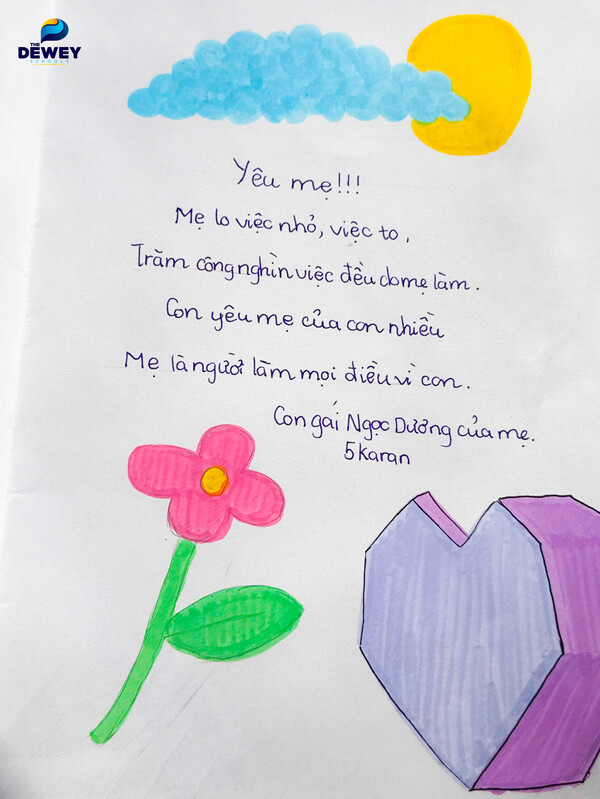 THE
DEWEY
SCHOOLS
Yêu mẹ!!!
Mẹ lo việc nhỏ, việc to,
Trăm công nghìn việc đều do mẹ làm.
Con yêu mẹ của con nhiều
Mẹ là người làm mọi điều vì con.
Con gái Ngọc Dương của mẹ.
5Karan